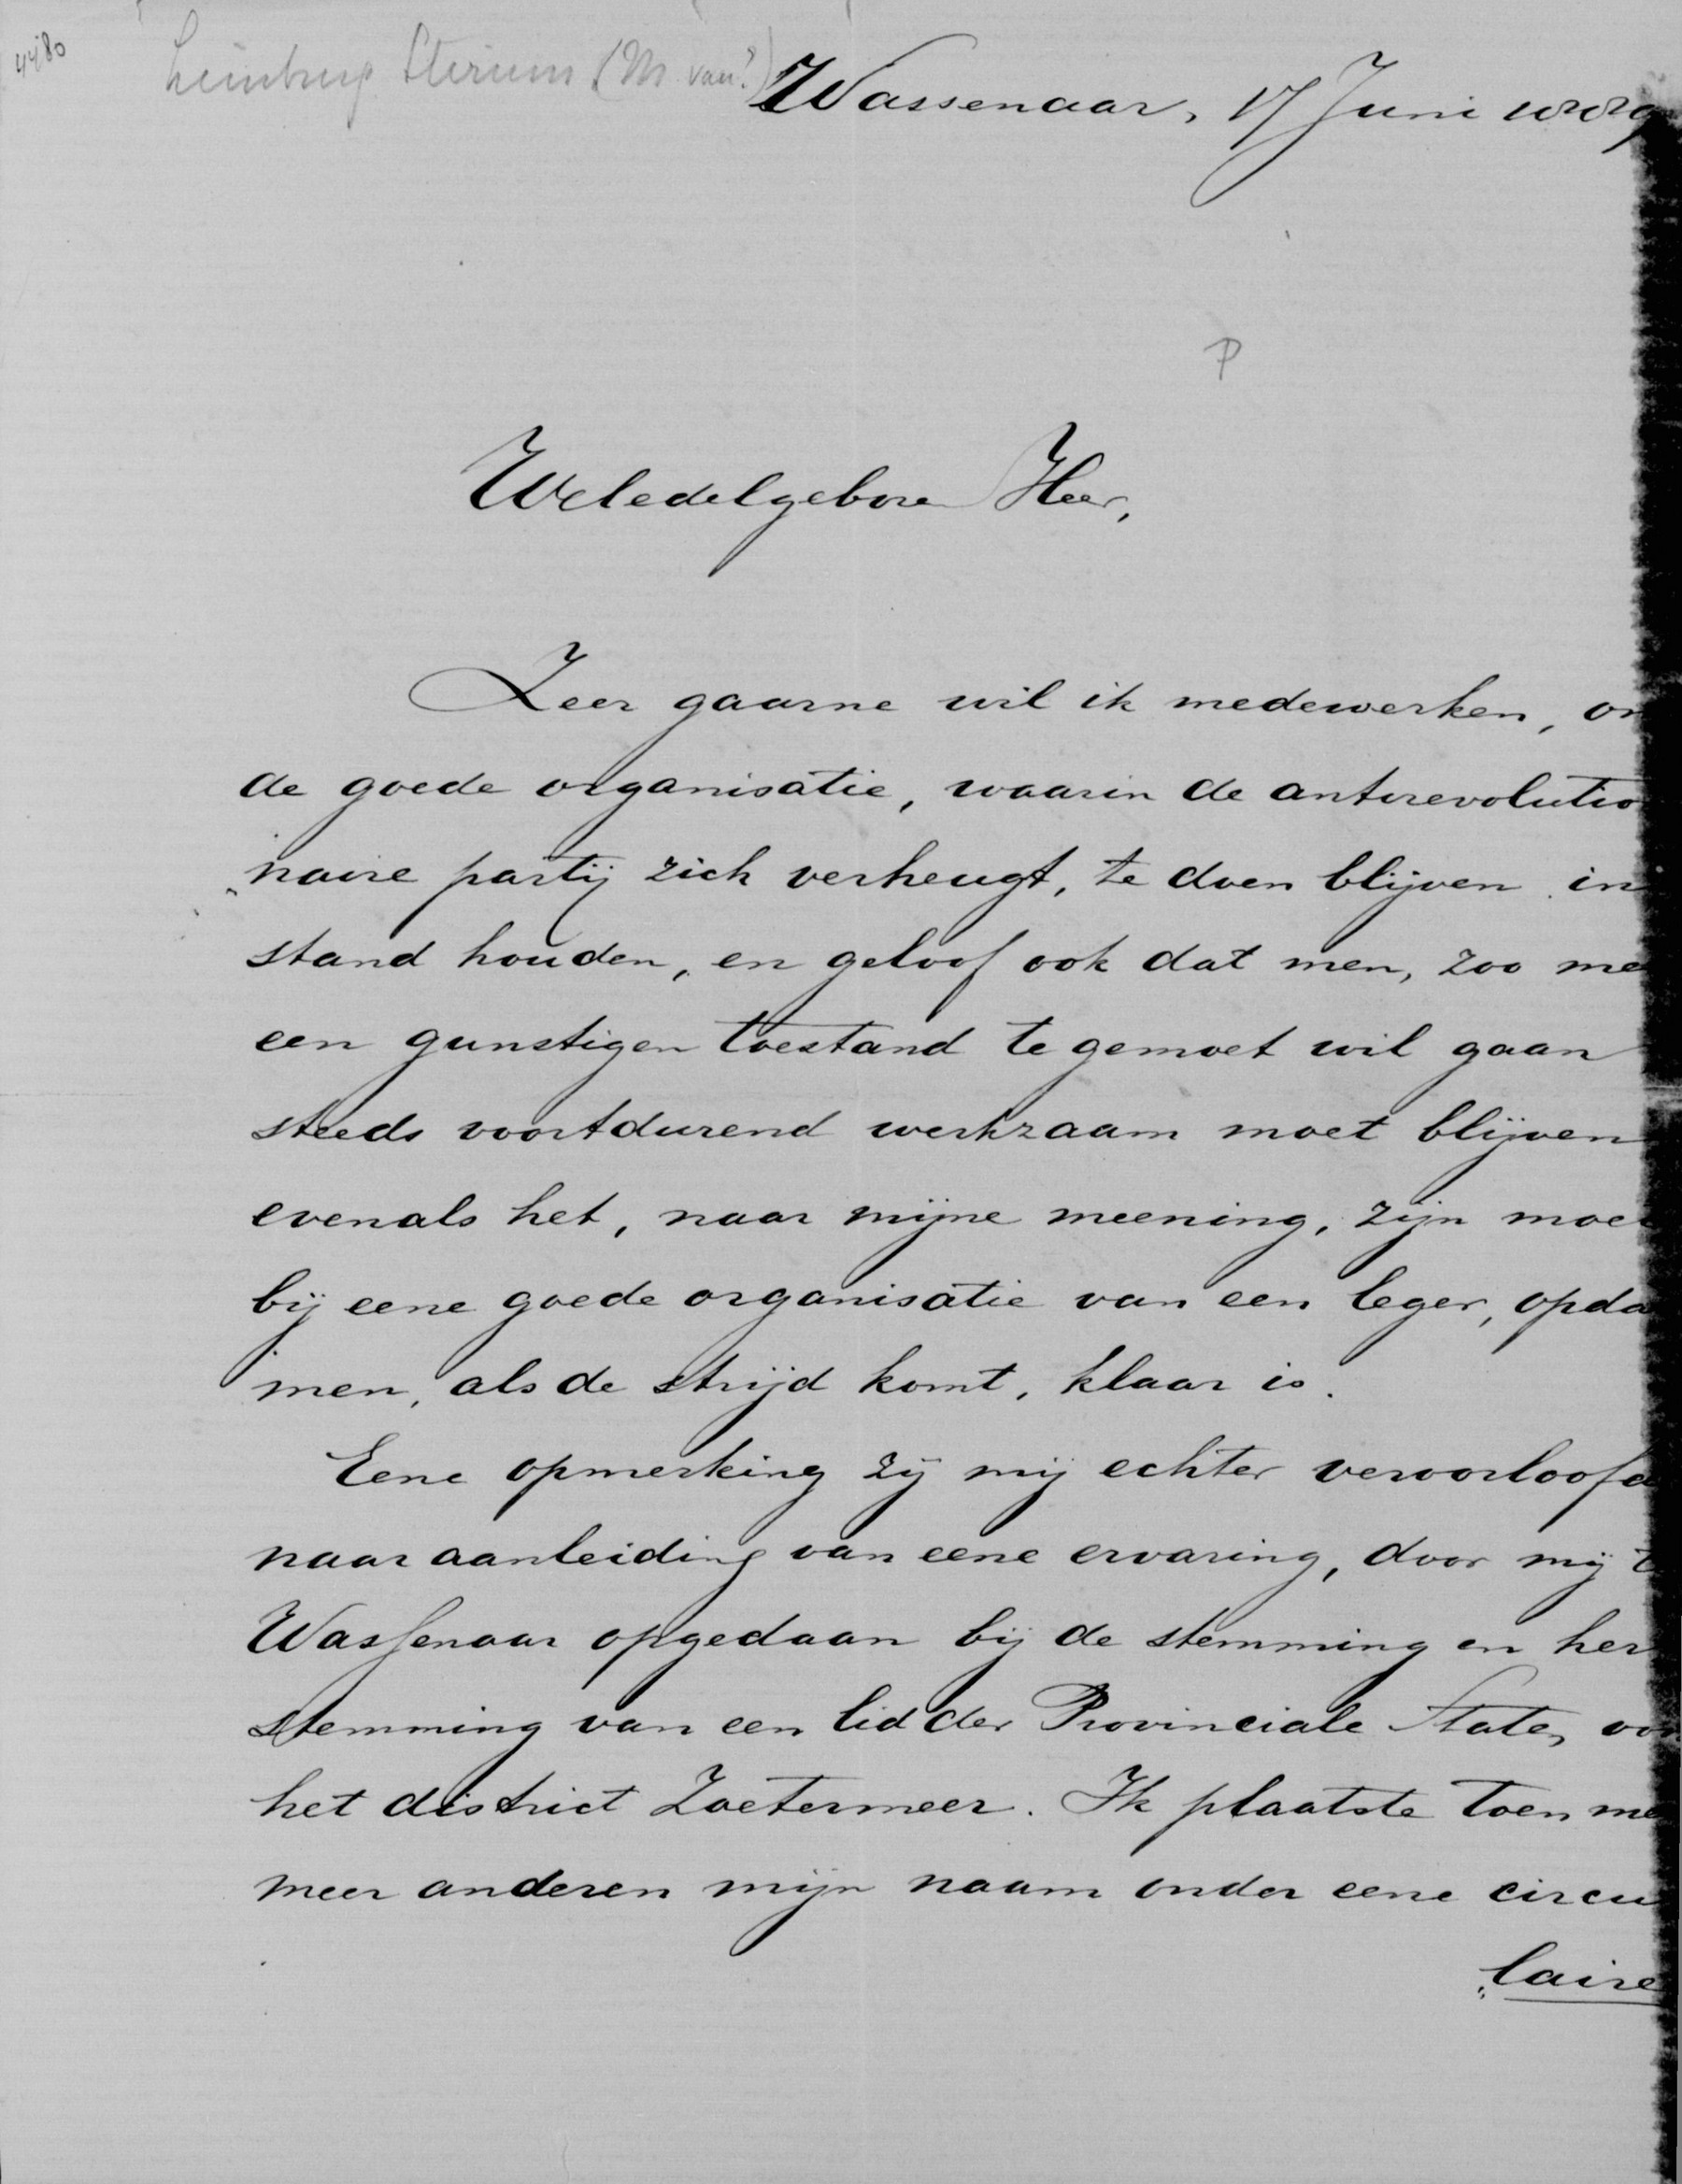 4480
Limburg Stirum (M. van?)
Wassenaar, 17 Juni 1889
P
Weledelgeboren Heer,
Zeer gaarne wil ik medewerken, om
de goede organisatie, waarin de antirevolutio
naire partij zich verheugt, te doen blijven in
stand houden, en geloof ook dat men, zoo me
een gunstigen toestand te gemoet wil gaan
steeds voortdurend werkzaam moet blijven
evenals het, naar mijne meening, zijn moet
bij eene goede organisatie van een leger, opda
men, als de strijd komt, klaar is.
Eene opmerking zij mij echter veroorloofd
naar aanleiding van eene ervaring, door mij t
Wassenaar opgedaan bij de stemming en her
stemming van een lid der Provinciale Staten voor
het district Zoetermeer. Ik plaatste toen me
meer anderen mijn naam onder eene circu
"laire